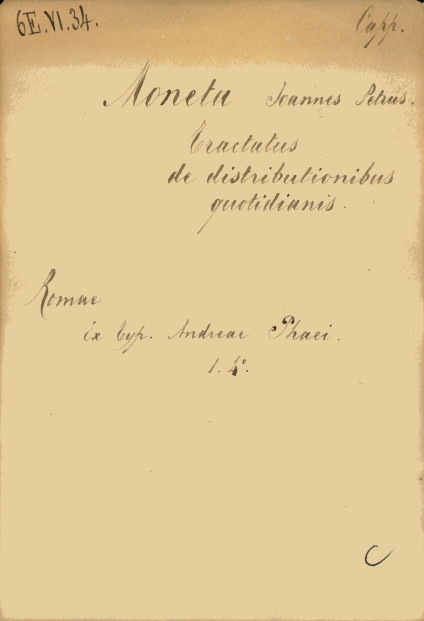 6E.VI.34. Capp.
Moneta Joannes Petrus.
Tractatus
de distributionibus
quotidianis.
Romae
Ex Typ. Andreae Phaei.
1. 4°.
C